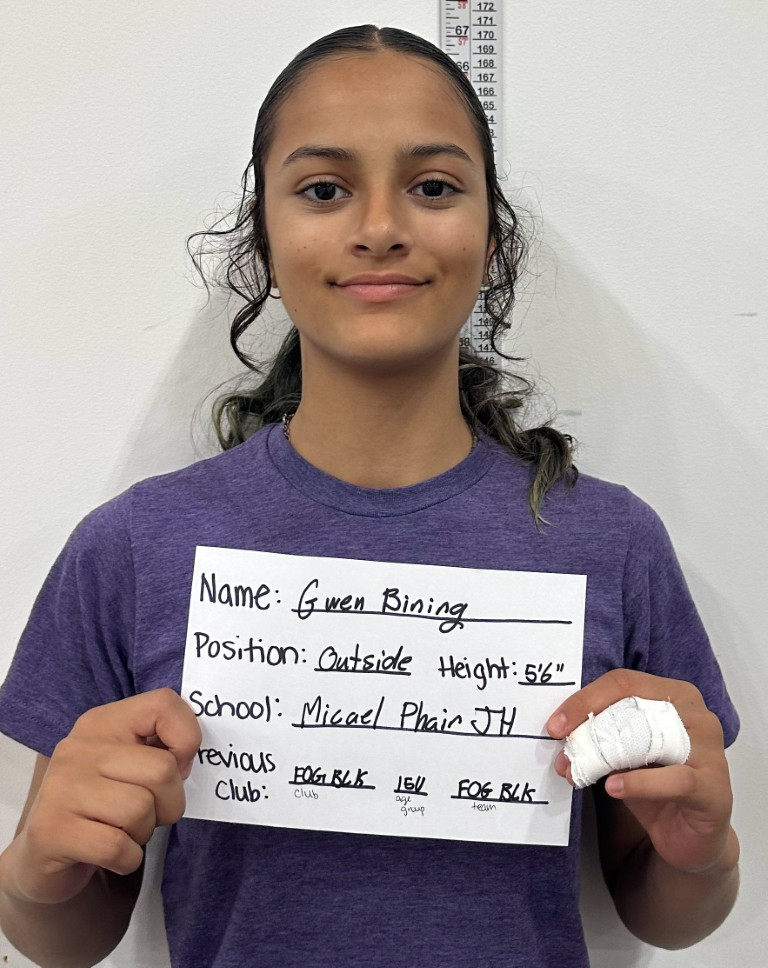 58 172
171
67 170
57 169
66 168
167
166
165
147
146
Name: Gwen Bining
Position: Outside Height: 5'6"
School: Micael Phair JH
revious
Club: FOG BLK 15U FOG BLK
club age group team